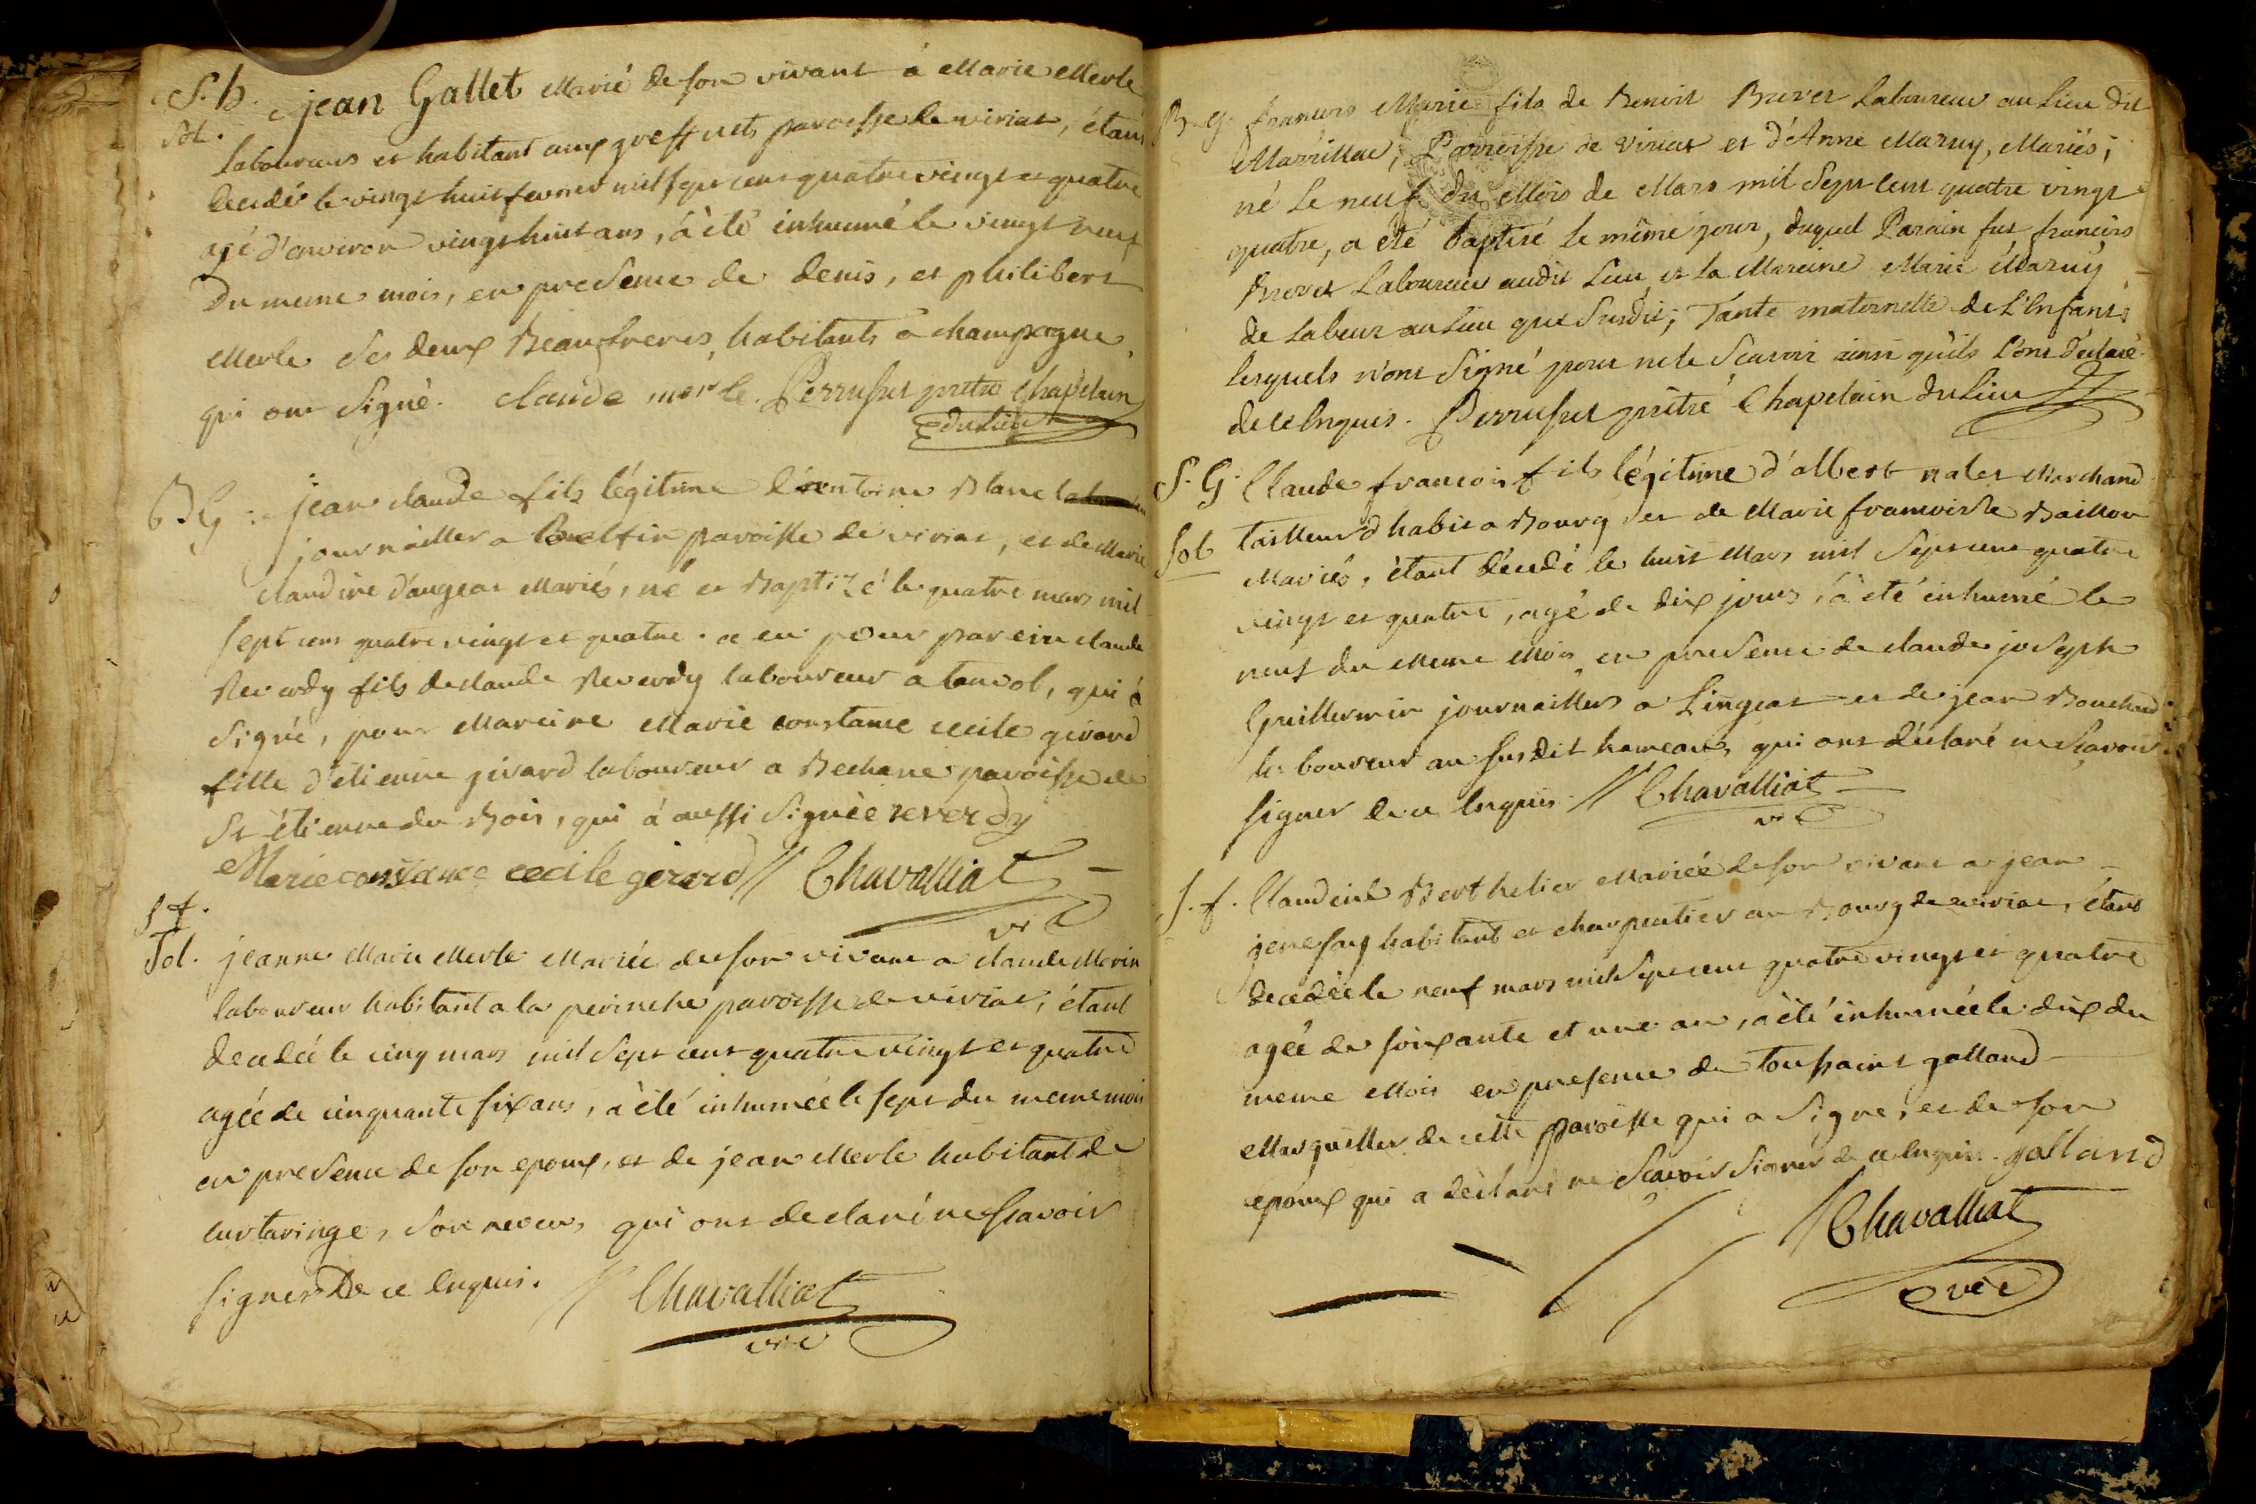 S. h. jean Gallet Marié de son vivant à Marie Merle
sol. laboureur et habitant aux greffets paroisse de viriat, étant
decedé le vingt huit fevrier mil sept cens quatre vingt et quatre
agé d'environ vingt huit ans, à été inhumé le vingt neuf
du meme mois, en presence de denis, et philibert
Merle ses deux Beaufreres, habitants a champagne,
qui ont signé. claude merle. Perruset prêtre Chapelain
du Lieu
B G : jean claude fils légitime d'antoine Blanc
journaillier a paroisse de viriat, et de Marie
claudine d'augeat Mariés, né et Baptizé le quatre mars mil
sept cens quatre vingt et quatre. a eu pour parein claude
Reverdy fils de claude Reverdy laboureur a tanvol, qui à
signé, pour Mareine Marie constance cecile girard
fille d'étienne girard laboureur a Bechane paroisse de
St étienne du Bois, qui à aussi signée reverdy
Marie constance cecile girard // Chavalliat
vic
S f.
Sol. jeanne Marie Merle Mariée de son vivant a claude Morin
laboureur habitant a la perinche paroisse de viriat, étant
decedée le cinq mars mil sept cent quatre vingt et quatre
agée de cinquante six ans, à été inhumée le sept du meme mois
en presence de son epoux, et de jean Merle habitant de
curtaringe, son neveu, qui ont declaré ne scavoir
signer De ce Enquis. // Chavalliat
vic
B. g. francois Marie fils de Benoit Brevet Laboureur au Lieu dit
Marillac, Parroisse de Viriat et d'Anne Maruy, Mariés;
né Le neuf du Mois de Mars mil Sept Cent quatre vingt
quatre, a été baptisé Le même jour, duquel Parain fut francois
Brevet Laboureur audit Lieu et la Mareine Marie Maruy
de Labeur au Lieu que Susdit; Tante maternelle de L'Enfant;
Lesquels n'ont Signé pour ne le Scavoir ainsi qu'ils L'ont déclaré
de ce Enquis. Perruset prêtre Chapelain du Lieu
S. G. Claude francois fils légitime d'albert nales Marchand
Sol tailleur d habit a Bourg et de Marie francoise Baillon
Mariés, étant décédé le huit Mars mil Sept cent quatre
vingt et quatre, agé de dix jours, à été inhumé le
neuf du Meme Mois en presence de claude joseph
Guillermin journaillier a Lingeat et de jean Bouchard
laboureur au susdit hameau, qui ont déclaré ne scavoir
signer de ce Enquis // Chavalliat
vic
S. f. Claudine Berthelier Mariée de son vivant a jean
habitant et charpentier au Bourg de viriat, étant
decedée le neuf mars mil Sept cent quatre vingt et quatre
agée de soixante et une an, à été inhumée le dix du
meme Mois en presence de Toussaint galland
Marguillier de cette paroisse qui a Signé, et de son
epoux qui a déclaré ne Scavoir Signer de ce Enquis. galland
// Chavalliat
vic